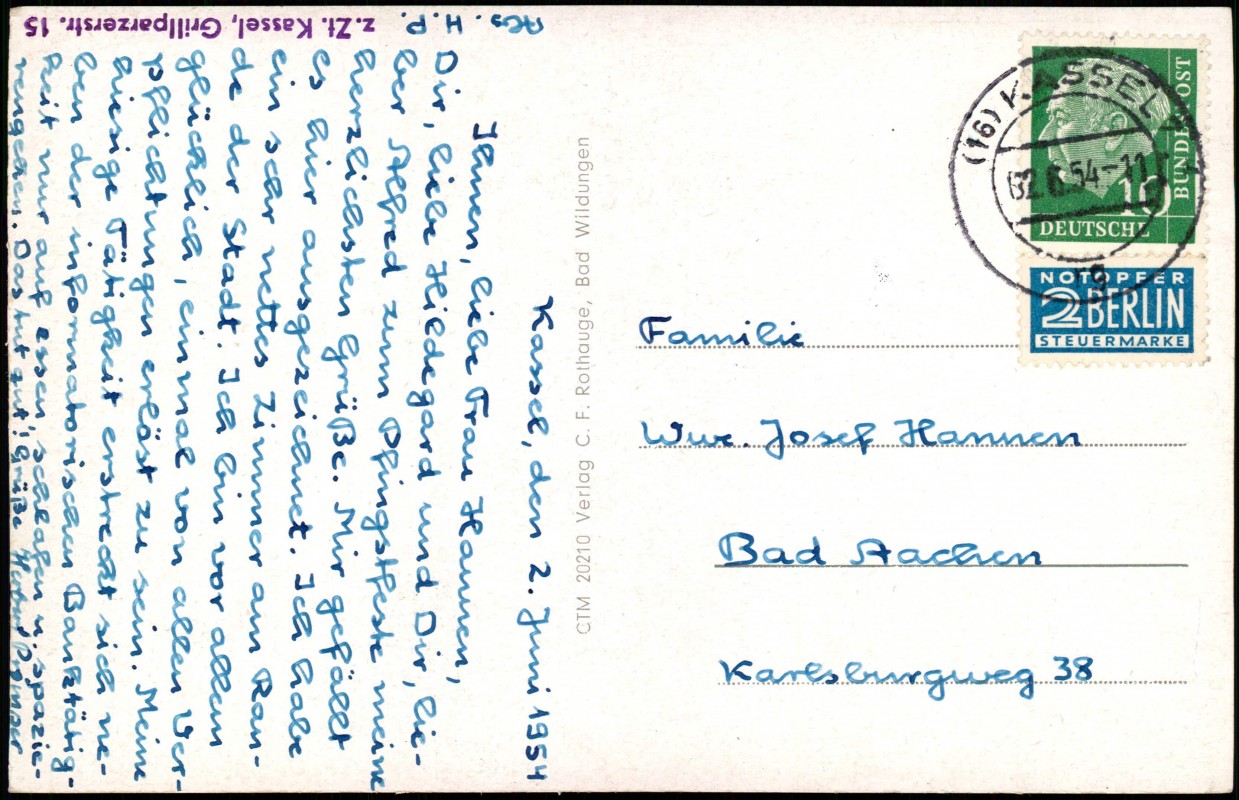 Abs. H. P.
z.Zt. Kassel, Grillparzerstr. 15
Kassel, den 2. Juni 1954
Ihnen, liebe Frau Hannen,
Dir, liebe Hildegard und Dir, lie-
ber Alfred zum Pfingstfeste meine
herzlichsten Grüße. Mir gefällt
es hier ausgezeichnet. Ich habe
ein sehr nettes Zimmer am Ran-
de der Stadt. Ich bin vor allem
glücklich, einmal von allen Ver-
pflichtungen erlöst zu sein. Meine
hiesige Tätigkeit erstreckt sich ne-
ben der informatorischen Banktätig-
keit nur auf essen, schlafen u. spazie-
rengehen. Das tut gut! Grüße
CTM 20210 Verlag C. F. Rothauge, Bad Wildungen
(16) KASSEL
02.6.54-11
rg
DEUTSCHE
BUNDESPOST
10
NOTOPFER
2 BERLIN
STEUERMARKE
Familie
Wwe. Josef Hannen
Bad Aachen
Karlsburgweg 38